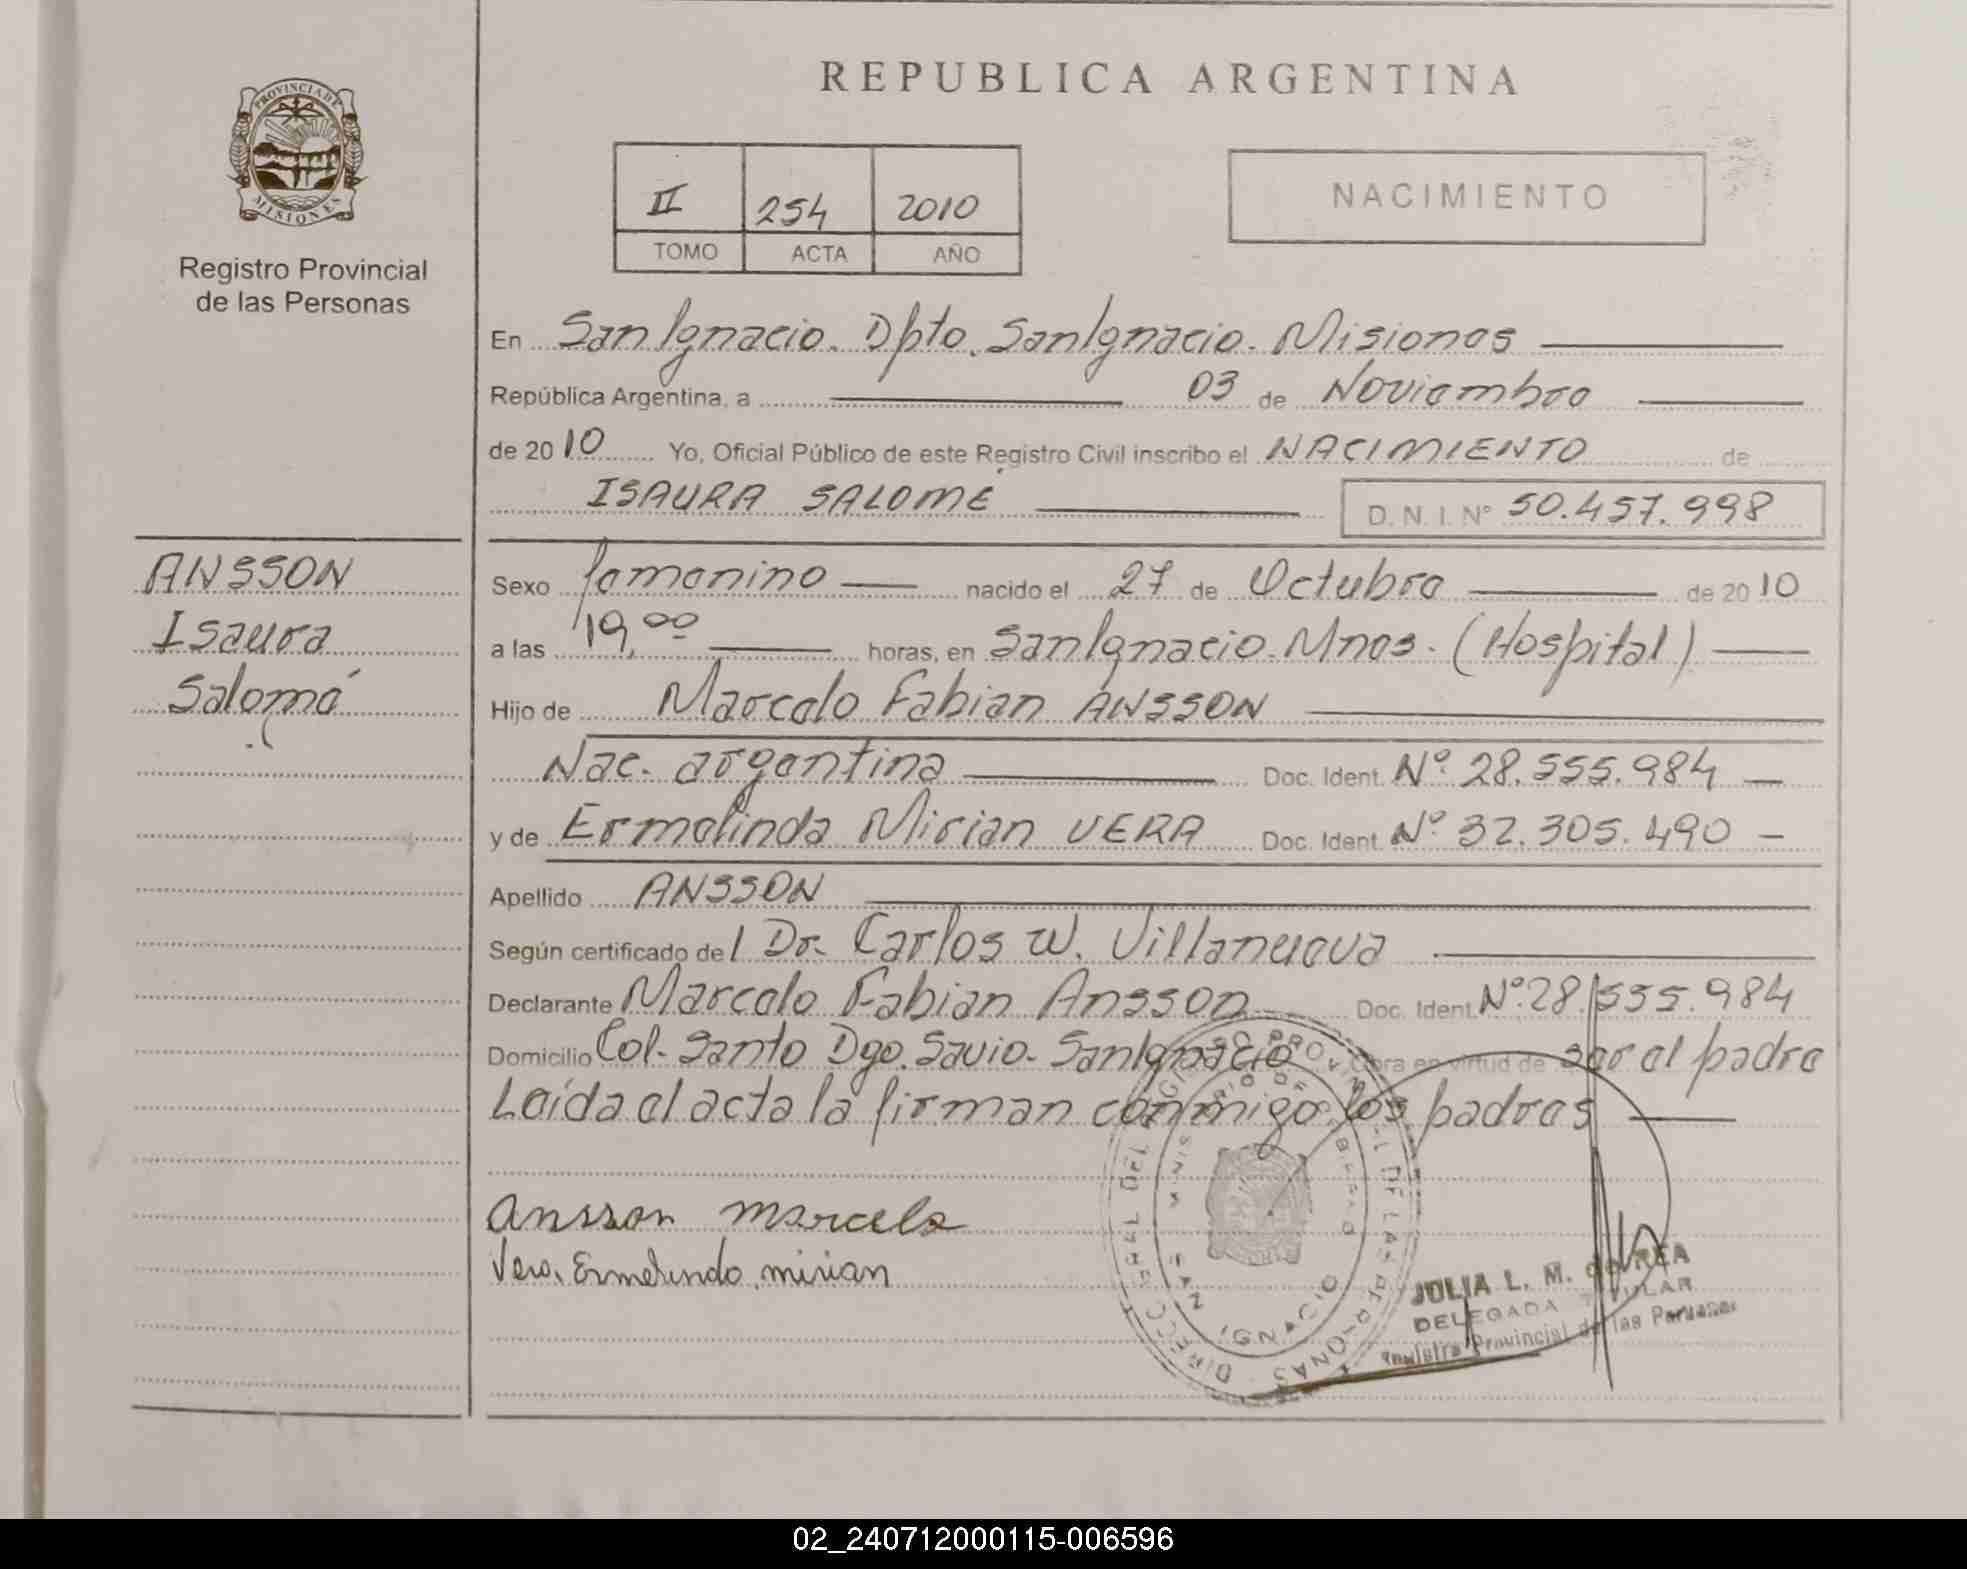 PROVINCIA DE
MISIONES
Registro Provincial
de las Personas
ANSSON
Isaura
Salomé
REPUBLICA ARGENTINA
II 254 2010
TOMO ACTA AÑO
NACIMIENTO
En San Ignacio. Dpto. San Ignacio. Misiones
República Argentina, a 03 de Noviembre
de 2010 Yo, Oficial Público de este Registro Civil inscribo el NACIMIENTO de
ISAURA SALOMÉ D.N.I. Nº 50.457.998
Sexo femenino nacido el 27 de Octubre de 2010
a las 19,00 horas, en San Ignacio. Mnes. (Hospital)
Hijo de Marcelo Fabian ANSSON
Nac. argentina Doc. Ident. Nº 28.555.984
y de Ermelinda Mirian VERA Doc. Ident. Nº 32.305.490
Apellido ANSSON
Según certificado del Dr. Carlos W. Villanueva
Declarante Marcelo Fabian Ansson Doc. Ident. Nº 28.555.984
Domicilio Col. Santo Dgo. Savio. San Ignacio Obra en virtud de ser el padre
Leída el acta la firman conmigo los padres
Ansson Marcelo
Vera, Ermelinda mirian
SAN IGNACIO
JULIA L. M. de REA
DELEGADA TITULAR
Registro Provincial de las Personas
02_240712000115-006596